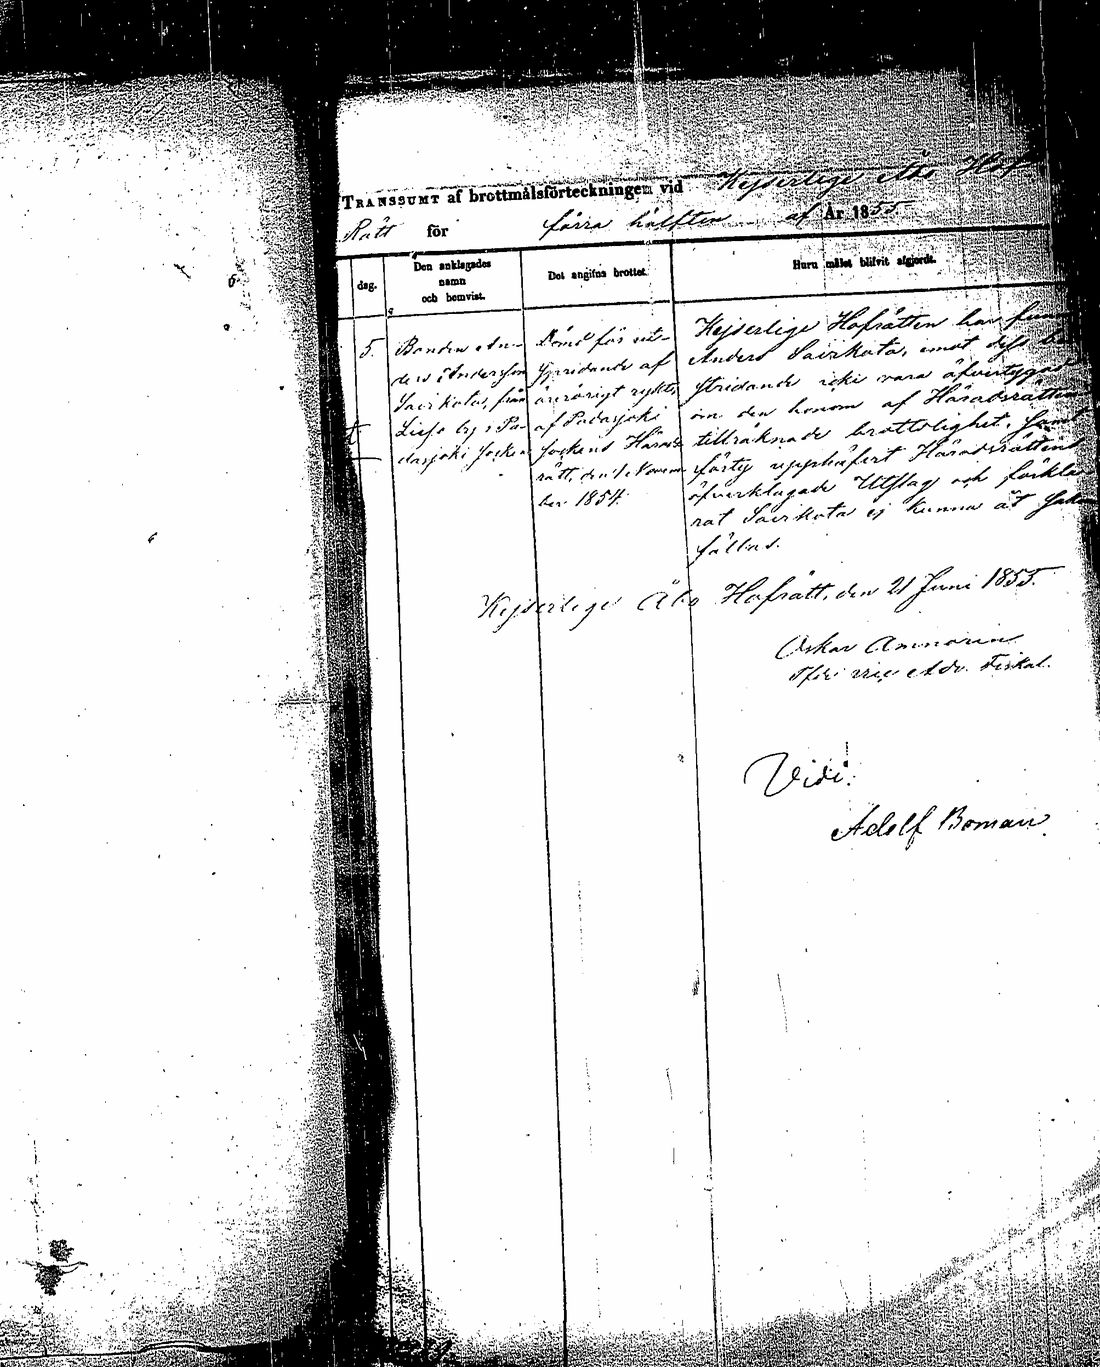 TRANSSUMT af brottmålsförteckningen vid Kejserlige Åbo Hof
Rätt för förra hälften af År 1855
dag.
Den anklagades namn och hemvist.
Det angifna brottet.
Huru målet blifvit afgjordt.
5.
Bonden An-
ders Andersson
Sairkola, från
by i Pa-
dasjoki Socken
Dömd för ut-
spridande af
ärerörigt rykte,
af Padasjoki
Sockens Härads-
rätt, den 1 Novem-
ber 1854.
Kejserlige Hofrätten har
Anders Sairkola, emot dess
stridande icke vara öfvertygad
om den honom af Häradsrätten
tillräknade brottslighet,
upphäfvit Häradsrättens
öfverklagade Utslag och förkla
rat Sairkola ej kunna åt Saken
fällas.
Kejserlige Åbo Hofrätt, den 21 Juni 1855.
Oskar
vice Adv. Fiskal.
Vidi:
Adolf Boman.